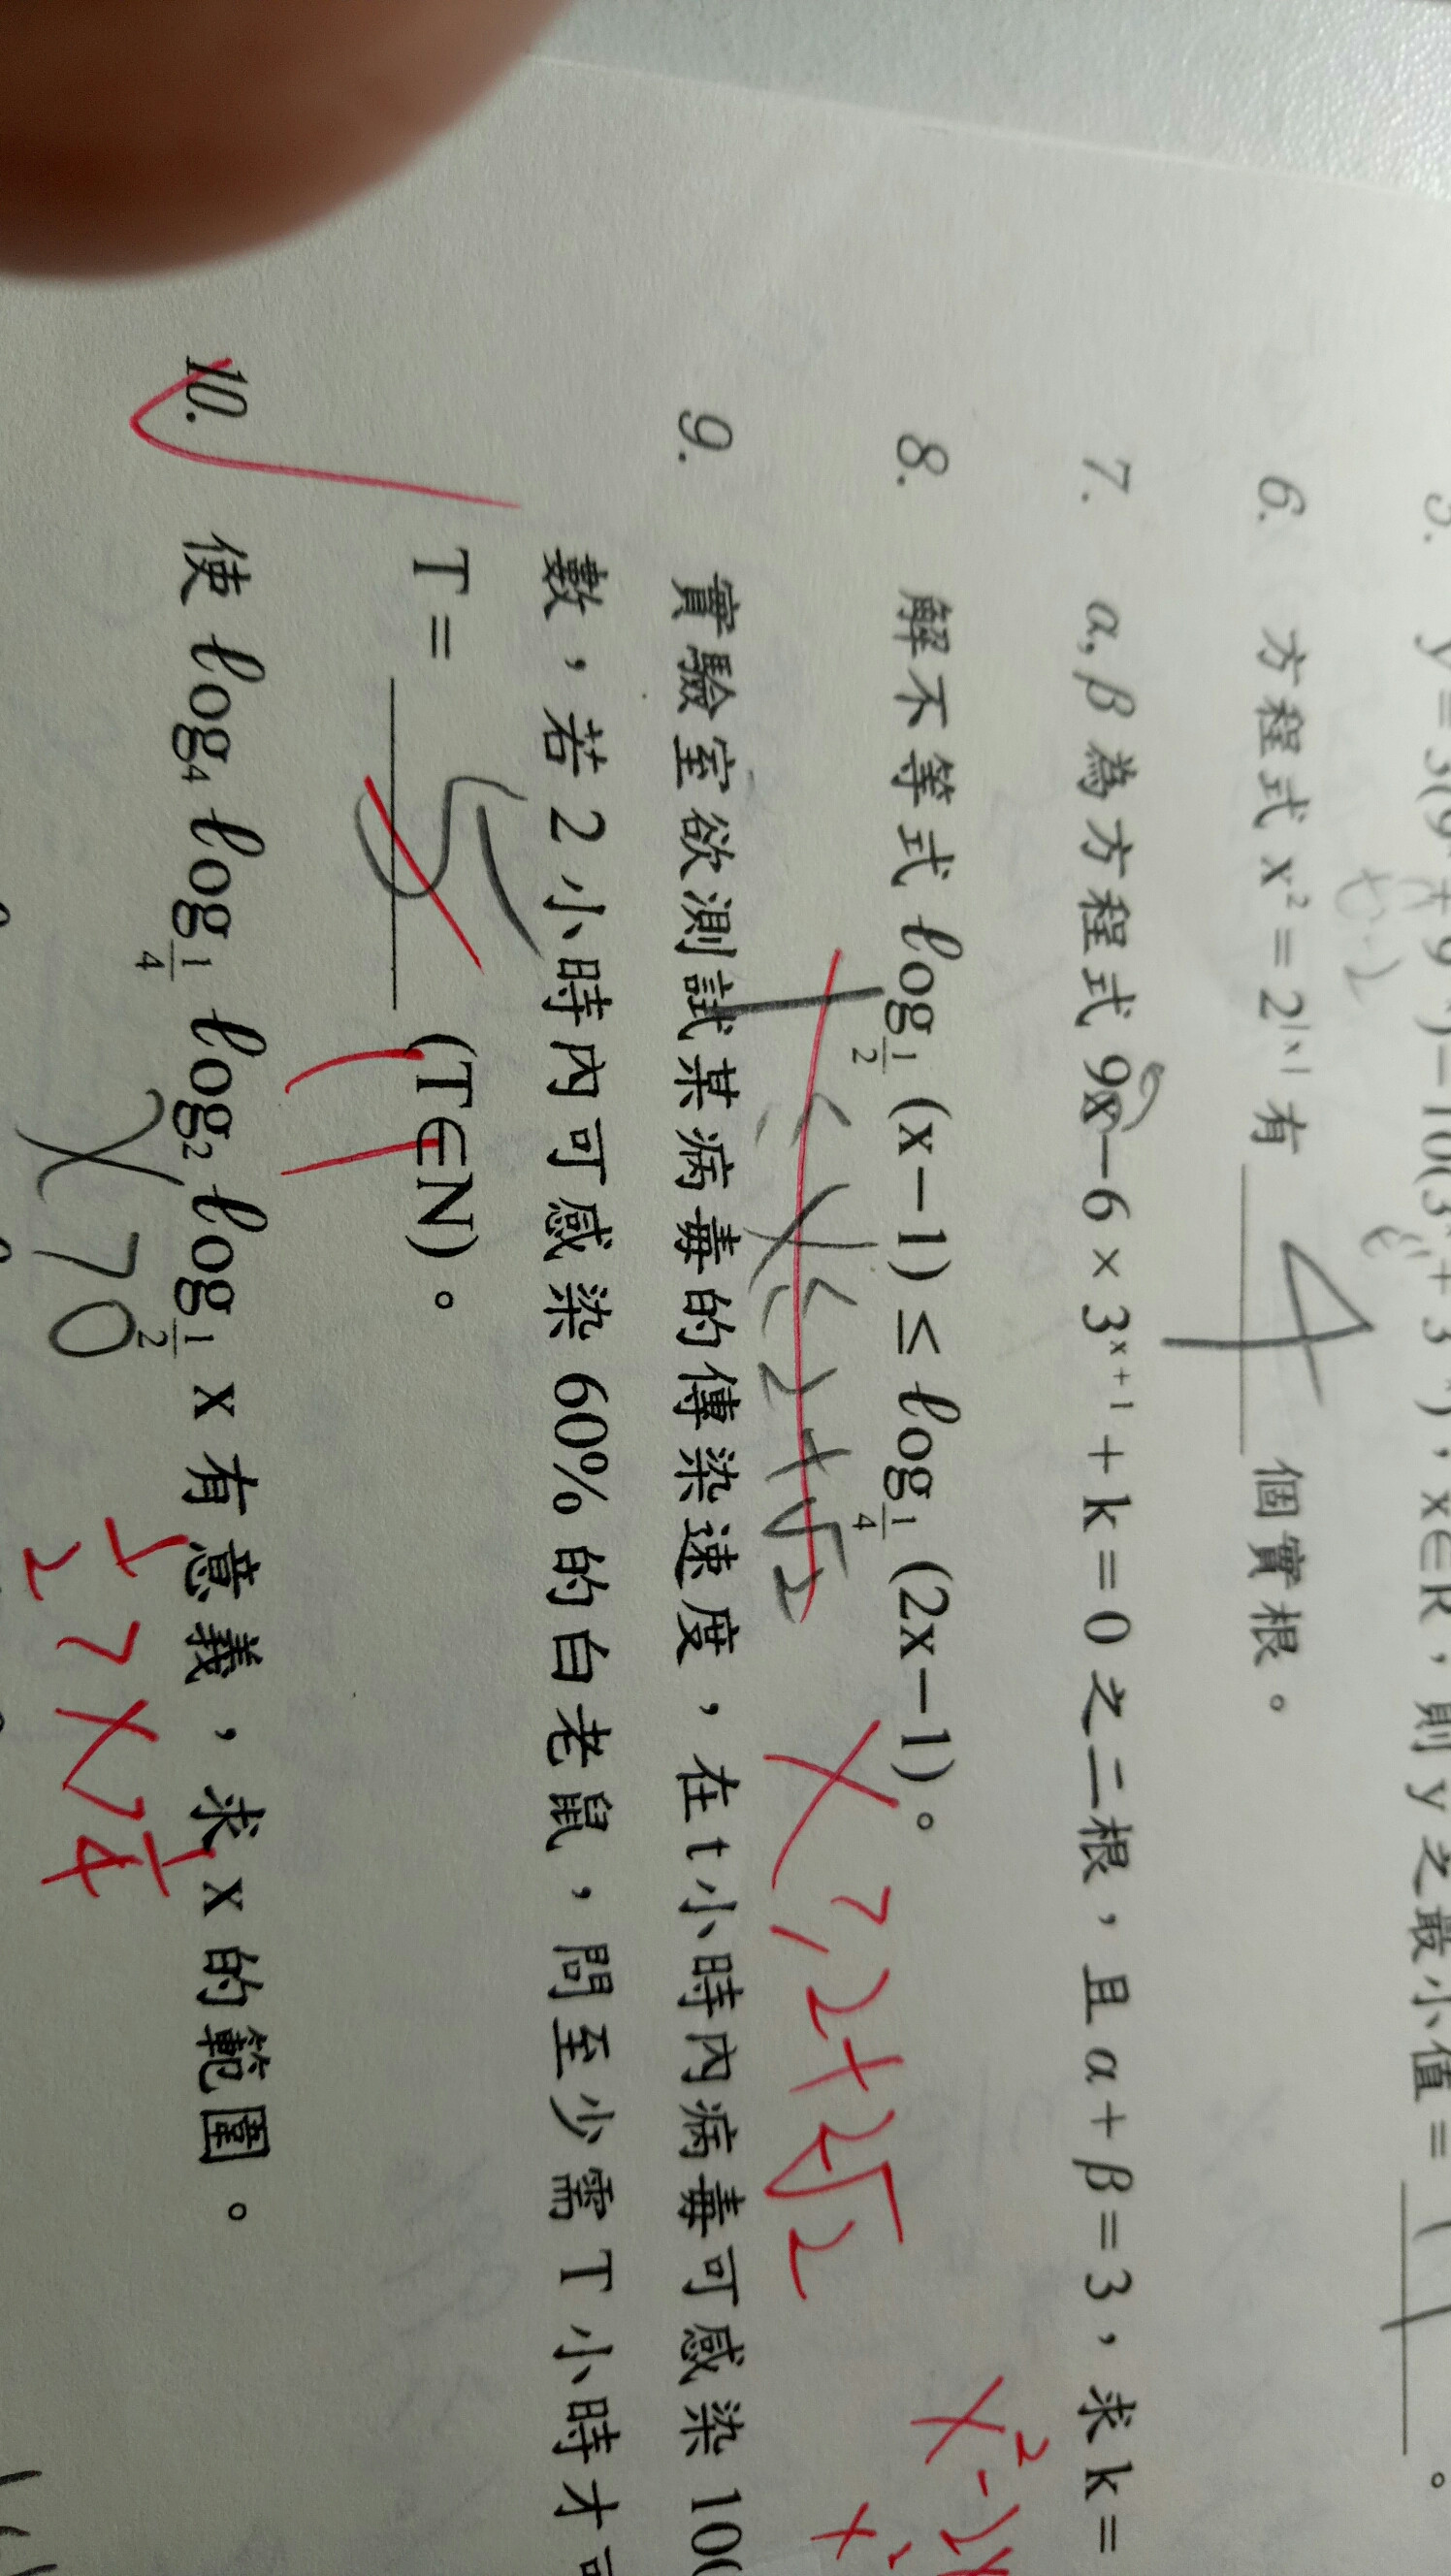 y = 3(9
)-10(3
+3
), x∈R, 則 y 之最小值 =
。
6. 方程式 x² = 2|x| 有 4 個實根。
7. α, β 為方程式 9x-6×3ˣ⁺¹+k=0 之二根, 且 α+β=3, 求 k=
x²-
8. 解不等式 log½ (x-1) ≤ log¼ (2x-1)。
1<x≤2+√2
x≥2+√2
9. 實驗室欲測試某病毒的傳染速度, 在 t 小時內病毒可感染
數, 若 2 小時內可感染 60% 的白老鼠, 問至少需 T 小時才
T = 5 (T∈N)。
10. 使 log₄ log¼ log₂ log½ x 有意義, 求 x 的範圍。
x>0
½>x>¼